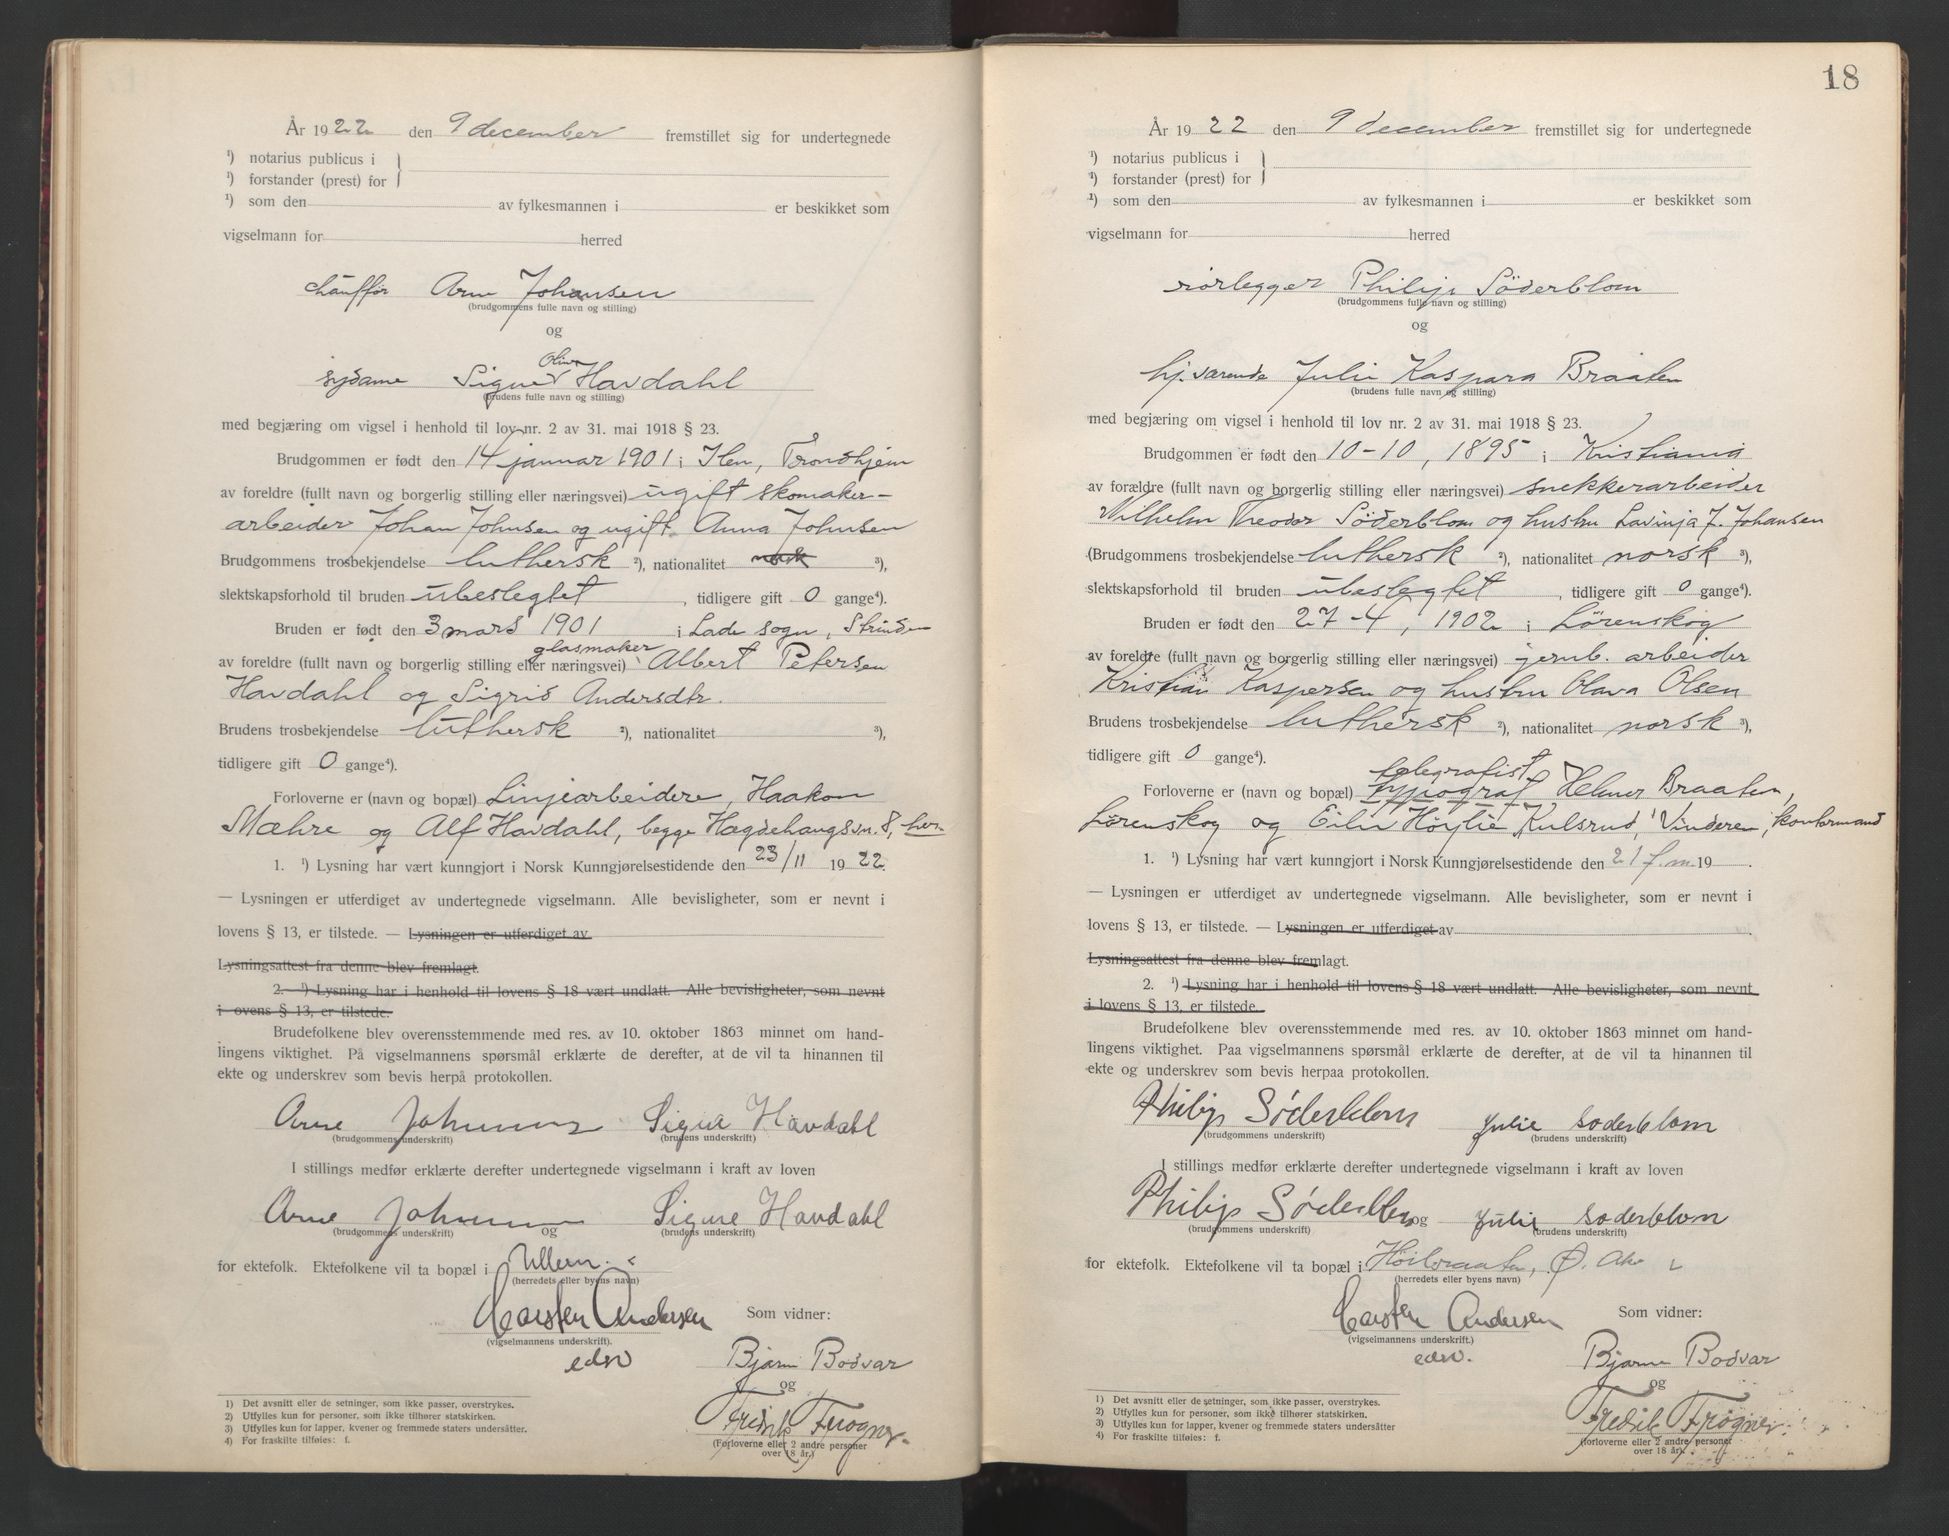 År 1922 den 9 december fremstillet sig for undertegnede
¹) notarius publicus i
¹) forstander (prest) for
¹) som den av fylkesmannen i er beskikket som
vigselmann for herred
chauffør Arne Johansen
(brudgommens fulle navn og stilling)
og
Oline
sydame Signe Havdahl
(brudens fulle navn og stilling)
med begjæring om vigsel i henhold til lov nr. 2 av 31. mai 1918 § 23.
Brudgommen er født den 14 januar 1901 i Ilen, Trondhjem
av foreldre (fullt navn og borgerlig stilling eller næringsvei) ugift skomaker-
arbeider Johan Johnsen og ugift Anna Johnsen
Brudgommens trosbekjendelse luthersk ²), nationalitet norsk ³),
slektskapsforhold til bruden ubeslegtet, tidligere gift 0 gange⁴).
Bruden er født den 3 mars 1901 i Lade sogn, Strinden
glasmaker
av foreldre (fullt navn og borgerlig stilling eller næringsvei) Albert Petersen
Havdahl og Sigrid Andersdtr.
Brudens trosbekjendelse luthersk ²), nationalitet ³),
tidligere gift 0 gange⁴).
Forloverne er (navn og bopæl) Linjearbeidere, Haakon
Mæhre og Alf Havdahl, begge Hegdehaugsvn. 8, her
1. ¹) Lysning har vært kunngjort i Norsk Kunngjørelsestidende den 23/11 1922.
— Lysningen er utferdiget av undertegnede vigselmann. Alle bevisligheter, som er nevnt i
lovens § 13, er tilstede. — Lysningen er utferdiget av
Lysningsattest fra denne blev fremlagt.
2. ¹) Lysning har i henhold til lovens § 18 vært undlatt. Alle bevisligheter, som nevnt
i ovens § 13, er tilstede.
Brudefolkene blev overensstemmende med res. av 10. oktober 1863 minnet om hand-
lingens viktighet. På vigselmannens spørsmål erklærte de derefter, at de vil ta hinannen til
ekte og underskrev som bevis herpå protokollen.
Arne Johansen Signe Havdahl
(brudgommens underskrift) (brudens underskrift)
I stillings medfør erklærte derefter undertegnede vigselmann i kraft av loven
Arne Johansen Signe Havdahl
(brudgommens underskrift) og (brudens underskrift)
for ektefolk. Ektefolkene vil ta bopæl i Ullern.
(herredets eller byens navn)
Carsten Andersen Som vidner:
(vigselmannens underskrift).
edsv Bjarne Bodvar
og
Fredrik Frogner
(Forloverne eller 2 andre personer
over 18 år.)
1) Det avsnitt eller de setninger, som ikke passer, overstrykes.
2) Utfylles kun for personer, som ikke tilhører statskirken.
3) Utfylles kun for lapper, kvener og fremmede staters undersåtter.
4) For fraskilte tilføies: f.
18
År 1922 den 9 december fremstillet sig for undertegnede
¹) notarius publicus i
¹) forstander (prest) for
¹) som den av fylkesmannen i er beskikket som
vigselmann for herred
rørlegger Philip Söderblom
(brudgommens fulle navn og stilling)
og
hj.værende Julie Kaspara Braaten
(brudens fulle navn og stilling)
med begjæring om vigsel i henhold til lov nr. 2 av 31. mai 1918 § 23.
Brudgommen er født den 10-10, 1895 i Kristiania
av forældre (fullt navn og borgerlig stilling eller næringsvei) snekkerarbeider
Wilhelm Theodor Söderblom og hustru Lavinja J. Johansen
(Brudgommens trosbekjendelse luthersk ²), nationalitet norsk ³),
slektskapsforhold til bruden ubeslegtet, tidligere gift 0 gange⁴).
Bruden er født den 27-4, 1902 i Lørenskog
av foreldre (fullt navn og borgerlig stilling eller næringsvei) jernb. arbeider
Kristian Kaspersen og hustru Olava Olsen
Brudens trosbekjendelse luthersk ²), nationalitet norsk ³),
tidligere gift 0 gange⁴).
telegrafist
Forloverne er (navn og bopæl) typograf Helmer Braaten,
Lørenskog og Eilif Høylie Kulsrud, Vinderen, kontormand
1. ¹) Lysning har vært kunngjort i Norsk Kunngjørelsestidende den 21 f.m. 19 .
— Lysningen er utferdiget av undertegnede vigselmann. Alle bevisligheter, som er nevnt i
lovens § 13, er tilstede. — Lysningen er utferdiget av
Lysningsattest fra denne blev fremlagt.
2. ¹) Lysning har i henhold til lovens § 18 vært undlatt. Alle bevisligheter, som nevnt
i lovens § 13, er tilstede.
Brudefolkene blev overensstemmende med res. av 10. oktober 1863 minnet om hand-
lingens viktighet. Paa vigselmannens spørsmål erklærte de derefter, at de vil ta hinannen til
ekte og underskrev som bevis herpaa protokollen.
Philip Söderblom Julie Soderblom
(brudgommens underskrift) (brudens underskrift)
I stillings medfør erklærte derefter undertegnede vigselmann i kraft av loven
Philip Söderblom og Julie Soderblom
(brudgommens underskrift) (brudens underskrift)
for ektefolk. Ektefolkene vil ta bopæl i Höibraaten, Ø. Aker
(herredets eller byens navn)
Carsten Andersen Som vidner:
(vigselmannens underskrift.)
edsv. Bjarne Bodvar
og
Fredrik Frogner
(forloverne eller 2 andre personer
over 18 år).
1) Det avsnitt eller de setninger, som ikke passer, overstrykes.
2) Utfylles kun for personer, som ikke tilhører statskirken.
3) Utfylles kun for lapper, kvener og fremmede staters undersåtter
4) For fraskilte tilføies: f.